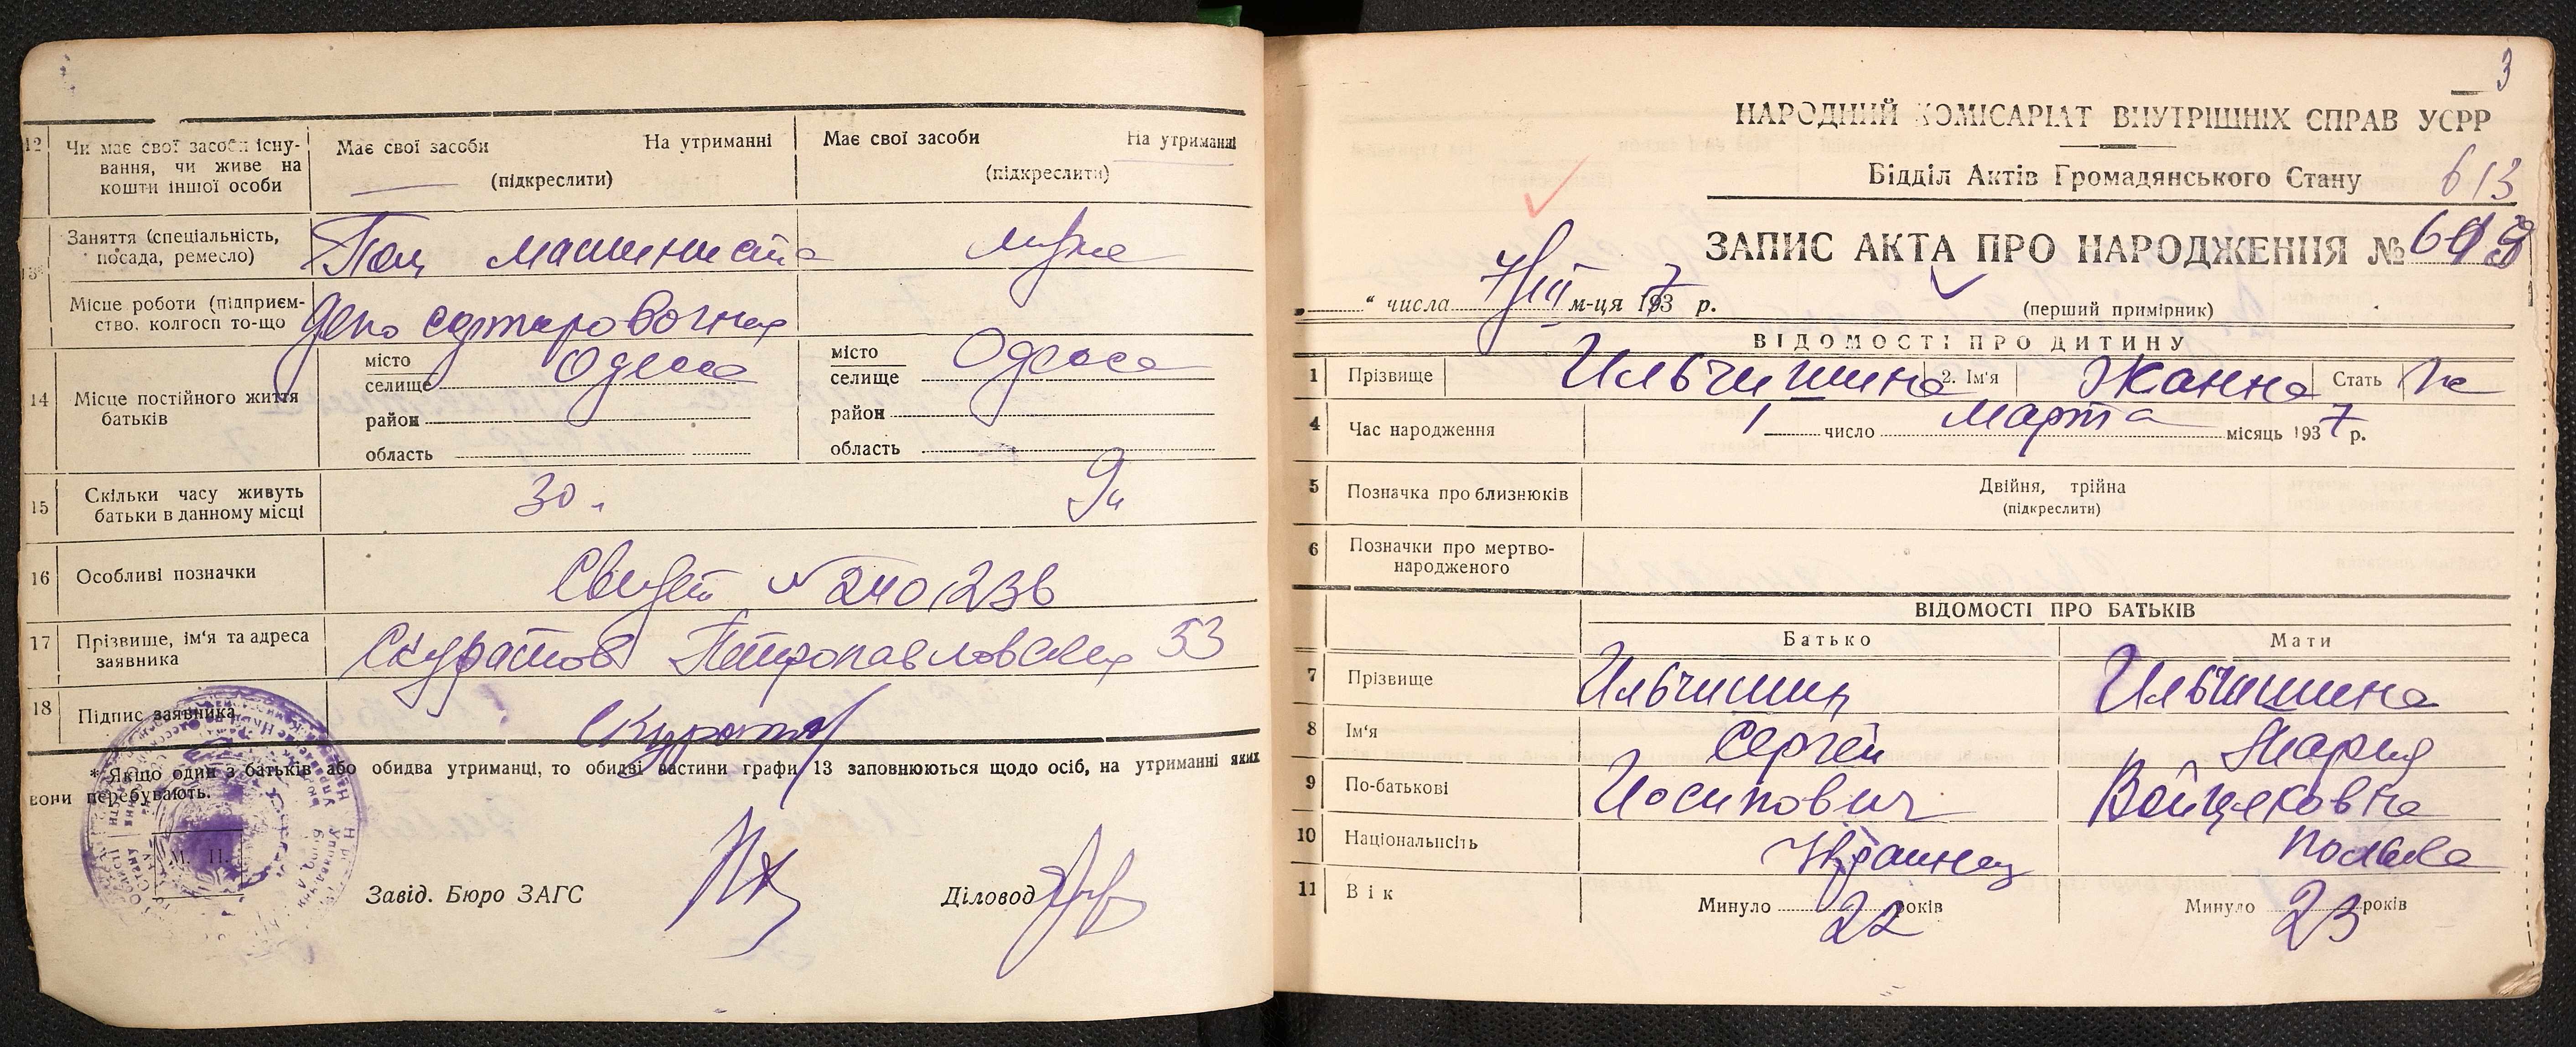 12 Чи має свої засоби існування, чи живе на кошти іншої особи
Має свої засоби На утриманні
(підкреслити)
Має свої засоби На утриманні
(підкреслити)
13* Заняття (спеціальність, посада, ремесло)
Пом машиниста
мужа
Місце роботи (підприємство, колгосп то-що
Депо сортировочная
14 Місце постійного життя батьків
місто
селище Одесса
район
область
місто
селище Одесса
район
область
15 Скільки часу живуть батьки в данному місці
30
16 Особливі позначки
Свидет № 240/236
17 Прізвище, ім'я та адреса заявника
Скуратов Петропавловская 53
18 Підпис заявника
Скуратов
* Якщо один з батьків або обидва утриманці, то обидві частини графи 13 заповнюються щодо осіб, на утриманні яких
вони перебувають.
М. П.
Завід. Бюро ЗАГС
Діловод
3
НАРОДНИЙ КОМІСАРІАТ ВНУТРІШНІХ СПРАВ УСРР
Відділ Актів Громадянського Стану
613
ЗАПИС АКТА ПРО НАРОДЖЕННЯ №
" числа 7/III м-ця 1937 р.
(перший примірник)
ВІДОМОСТІ ПРО ДИТИНУ
1 Прізвище Ильчишина 2. Ім'я Жанна Стать
4 Час народження 1 число Марта місяць 1937 р.
5 Позначка про близнюків
Двійня, трійня
(підкреслити)
6 Позначки про мертвонародженого
ВІДОМОСТІ ПРО БАТЬКІВ
Батько Мати
7 Прізвище Ильчишин Ильчишина
8 Ім'я Сергей Мария
9 По-батькові Иосипович Войцеховна
10 Національність Украинец Полька
11 Вік Минуло 22 років Минуло 23 років